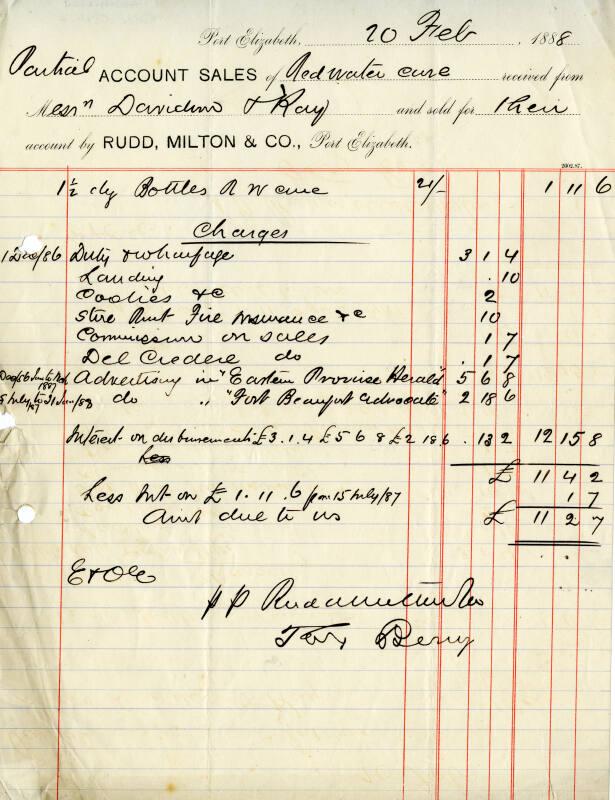 Port Elizabeth, 20 Feb, 1888
Partial ACCOUNT SALES of Redwater cure received from
Messrs Davidson & Kay and sold for their
account by RUDD, MILTON & CO., Port Elizabeth.
2002.87.
1 1/2 dy Bottles R W cure 21/- 1 11 6
Charges
1 Dec/86 Duty & wharfage 3 1 4
Landing . 10
Coolies &c 2
Store Rent Fire Insurance &c 10
Commission on sales 1 7
Del Credere do . 1 7
Advertising in "Eastern Province Herald" 5 6 8
5 July/87 to 31 Jan/88 do " "Fort Beaufort Advocate" 2 18 6
Interest on disbursements £3.1.4 £5 6 8 £2 18 6 . 13 2 12 15 8
Less
£ 11 4 2
Less Int on £1.11.6 from 15 July/87 1 7
Amt due to us £ 11 2 7
E&OE
pp Rudd Milton & Co
Berry